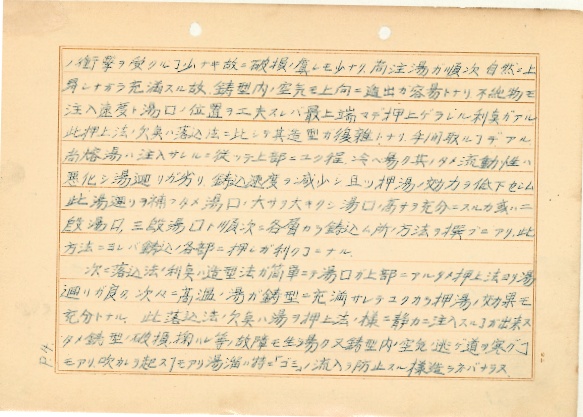 ノ衝撃ヲ受クルヿ少ナキ故ニ破損ノ虞レモ少ナリ、尚注湯ガ順次自然ニ上
昇シナガラ充満スル故鋳型内ノ空気モ上向ニ逃出ガ容易トナリ不純物モ
注入速度ト湯口ノ位置ヲ工夫スレバ最上端マデ押上ゲラレル利臭ガアル
此押上法ノ欠臭ハ落込法ニ比シテ其造型ガ複雑トナリ手間取ルヿデアル
尚熔湯ハ注入サレルニ従ッテ上部ニユク程冷ヘ易ク其ノタメ流動性ハ
悪化シ湯廻リガ劣リ鋳込速度ヲ減少シ且ツ押湯ノ効力ヲ低下セシム
此湯廻リヲ補フタメ湯口ノ大サヲ大キクシ湯口ノ高サヲ充分ニスルカ或ハ二
段湯口、三段湯口ト順次ニ各層カラ鋳込ム所ノ方法ヲ撰ブニアリ、此
方法ニヨレバ鋳込ノ各部ニ押シガ利クヿニナル、
次ニ落込法ノ利臭ハ造型法ガ簡単ニテ湯口ガ上部ニアルタメ押上法ヨリ湯
廻リガ良ク、次々ニ高温ノ湯ガ鋳型ニ充満サレテユクカラ押湯ノ効果モ
充分トナル、此落込法ノ欠臭ハ湯ヲ押上法ノ様ニ静カニ注入スルヿガ出来ズ
タメ鋳型ノ破損、掬ハレ等ノ故障モ生ジ易ク又鋳型内ノ空気逃ゲ道ヲ塞グヿ
モアリ、吹カレヲ起スヿモアリ湯溜ハ特ニ「ゴミ」ノ流入ヲ防止スル様造ラネバナラズ
P4